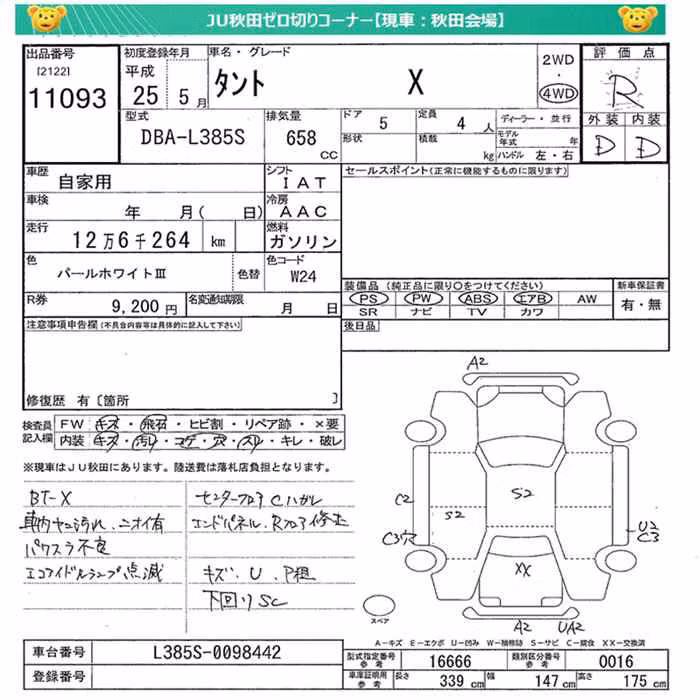 JU秋田ゼロ切りコーナー【現車：秋田会場】
出品番号 初度登録年月 車名・グレード 2WD ・ 4WD 評価点
[2122] 11093 平成 25 5月 タント X R
型式 DBA-L385S 排気量 658 CC ドア 5 定員 4 人 ディーラー・並行 外装 内装
形状 積載 kg モデル年式 年 ハンドル 左・右 D D
車歴 自家用 シフト IAT セールスポイント(正常に機能するものに限ります)
車検 年 月( 日) 冷房 AAC
走行 12万6千264 km 燃料 ガソリン
色 パールホワイトⅢ 色替 色コード W24
装備品 (純正品に限り○をつけてください) 新車保証書
R券 9,200円 名変通知期限 月 日 PS PW ABS エアB AW 有・無
SR ナビ TV カワ
注意事項申告欄(不具合内容等は具体的に記入して下さい) 後日品
修復歴 有〔箇所 〕
検査員記入欄 FW キズ・飛石・ヒビ割・リペア跡・×要
内装 キズ・汚レ・コゲ・穴・スレ・キレ・破レ
※現車はJU秋田にあります。陸送費は落札店負担となります。
BT-X センターフロアCハガレ
車内ヤニ汚れ、ニオイ有 エンドパネル、Rフロア修正
パワスラ不良
エコアイドルランプ点滅 キズ、U、P粗
下回りSC
A2
C2 S2 S2 U2
C3穴 C3
XX
スペア A2 UA2
A-キズ E-エクボ U-凹み W-補修跡 S-サビ C-腐食 XX-交換済
車台番号 L385S-0098442
登録番号
型式指定番号 参考 16666 類別区分番号 参考 0016
車庫証明用 参考 長さ 339 cm 幅 147 cm 高さ 175 cm